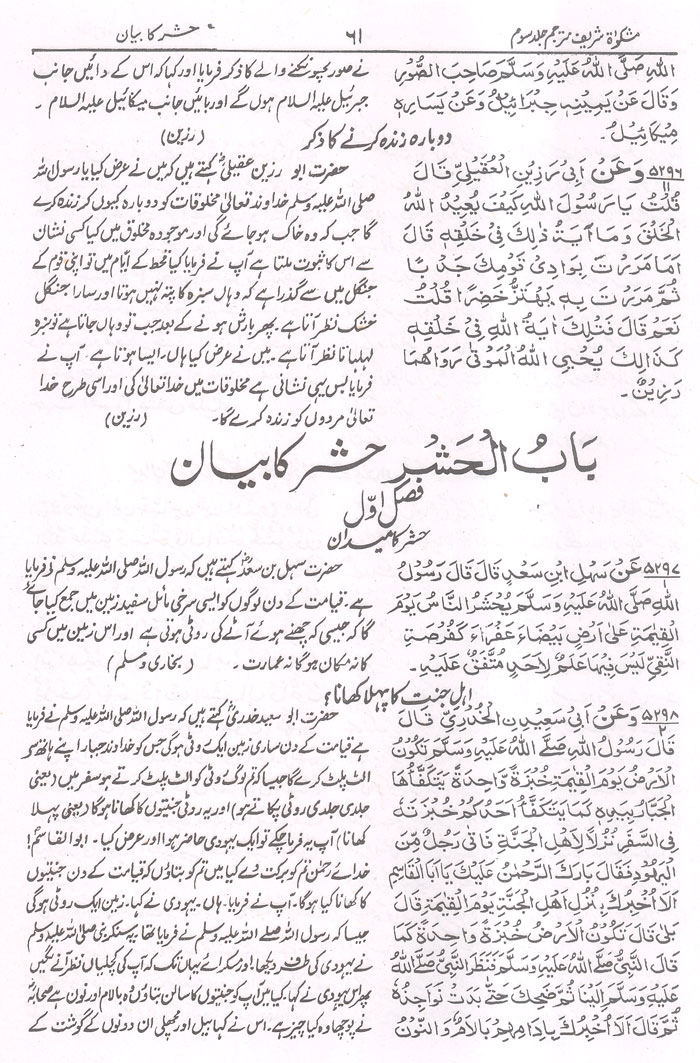 مشکوٰۃ شریف مترجم جلد سوم
۶۱
حشر کا بیان
اللهِ صَلَّى اللهُ عَلَيْهِ وَسَلَّمَ صَاحِبَ الصُّوْرِ
وَقَالَ عَنْ يَمِيْنِهِ جِبْرَائِيْلُ وَعَنْ يَسَارِهِ
مِيْكَائِيْلُ۔
نے صور پھونکنے والے کا ذکر فرمایا اور کہا کہ اس کے دائیں جانب
جبرئیل علیہ السلام ہوں گے اور بائیں جانب میکائیل علیہ السلام ۔
(رزین)
دوبارہ زندہ کرنے کا ذکر
۵۲۹۶ وَعَنْ اَبِىْ رَزِيْنِ الْعُقَيْلِيِّ قَالَ
۱۱
قُلْتُ يَا رَسُوْلَ اللهِ كَيْفَ يُعِيْدُ اللهُ
الْخَلْقَ وَمَا اٰيَةُ ذٰلِكَ فِىْ خَلْقِهٖ قَالَ
اَمَا مَرَرْتَ بِوَادِىْ قَوْمِكَ جَدْبًا
ثُمَّ مَرَرْتَ بِهٖ يَهْتَزُّ خَضِرًا قُلْتُ
نَعَمْ قَالَ فَتِلْكَ اٰيَةُ اللهِ فِىْ خَلْقِهٖ
كَذَالِكَ يُحْيِى اللهُ الْمَوْتٰى رَوَاهُمَا
رَزِيْنٌ۔
حضرت ابو رزین عقیلیؓ کہتے ہیں کہ میں نے عرض کیا یا رسول اللہ
صلی اللہ علیہ وسلم خداوند تعالیٰ مخلوقات کو دوبارہ کیوں کر زندہ کرے
گا جب کہ وہ خاک ہو جائے گی اور موجودہ مخلوق میں کیا کسی نشان
سے اس کا ثبوت ملتا ہے آپ نے فرمایا کیا قحط کے ایام میں تو اپنی قوم کے
جنگل میں سے گذرا ہے کہ وہاں سبزہ کا پتہ نہیں ہوتا اور سارا جنگل
خشک نظر آتا ہے۔ پھر بارش ہونے کے بعد جب تو وہاں جاتا ہے تو سبزہ
لہلہاتا نظر آتا ہے۔ میں نے عرض کیا ہاں۔ ایسا ہوتا ہے۔ آپ نے
فرمایا بس یہی نشانی ہے مخلوقات میں خدا تعالیٰ کی اور اسی طرح خدا
تعالیٰ مردوں کو زندہ کرے گا۔ (رزین)
بَابُ الْحَشْرِ حشر کا بیان
فصل اوّل
حشر کا میدان
۵۲۹۷ عَنْ سَهْلِ ابْنِ سَعْدٍ قَالَ قَالَ رَسُوْلُ
۱
اللهِ صَلَّى اللهُ عَلَيْهِ وَسَلَّمَ يُحْشَرُ النَّاسُ يَوْمَ
الْقِيٰمَةِ عَلٰى اَرْضٍ بَيْضَاءَ عَفْرَاءَ كَقُرْصَةِ
النَّقِيِّ لَيْسَ فِيْهَا عَلَمٌ لِاَحَدٍ مُتَّفَقٌ عَلَيْهِ۔
حضرت سہل بن سعدؓ کہتے ہیں کہ رسول اللہ صلی اللہ علیہ وسلم نے فرمایا
ہے۔ قیامت کے دن لوگوں کو ایسی سرخی مائل سفید زمین میں جمع کیا جائے
گا کہ جیسی کہ چھنے ہوئے آٹے کی روٹی ہوتی ہے اور اس زمین میں کسی
کا نہ مکان ہوگا نہ عمارت۔ (بخاری و مسلم)
اہل جنت کا پہلا کھانا؟
۵۲۹۸ وَعَنْ اَبِىْ سَعِيْدِنِ الْخُدْرِيِّ قَالَ
۲
قَالَ رَسُوْلُ اللهِ صَلَّى اللهُ عَلَيْهِ وَسَلَّمَ تَكُوْنُ
الْاَرْضُ يَوْمَ الْقِيٰمَةِ خُبْزَةً وَّاحِدَةً يَتَكَفَّاُهَا
الْجَبَّارُ بِيَدِهٖ كَمَا يَتَكَفَّأُ اَحَدُكُمْ خُبْزَتَهٗ
فِى السَّفَرِ نُزُلًا لِاَهْلِ الْجَنَّةِ فَاَتٰى رَجُلٌ مِّنَ
الْيَهُوْدِ فَقَالَ بَارَكَ الرَّحْمٰنُ عَلَيْكَ يَا اَبَا الْقَاسِمِ
اَلَا اُخْبِرُكَ بِنُزُلِ اَهْلِ الْجَنَّةِ يَوْمَ الْقِيٰمَةِ قَالَ
بَلٰى قَالَ تَكُوْنُ الْاَرْضُ خُبْزَةً وَّاحِدَةً كَمَا
قَالَ النَّبِيُّ صَلَّى اللهُ عَلَيْهِ وَسَلَّمَ فَنَظَرَ النَّبِيُّ صَلَّى اللهُ
عَلَيْهِ وَسَلَّمَ اِلَيْنَا ثُمَّ ضَحِكَ حَتّٰى بَدَتْ نَوَاجِذُهٗ
ثُمَّ قَالَ اَلَا اُخْبِرُكَ بِاِدَامِهِمْ بَالَامُ وَالنُّوْنُ
حضرت ابو سعید خدریؓ کہتے ہیں کہ رسول اللہ صلی اللہ علیہ وسلم نے فرمایا
ہے قیامت کے دن ساری زمین ایک روٹی ہوگی جس کو خداوند جبار اپنے ہاتھ سے
الٹ پلٹ کرے گا جیسا کہ تم لوگ روٹی کو الٹ پلٹ کرتے ہو سفر میں (یعنی
جلدی جلدی روٹی پکاتے ہو) اور یہ روٹی جنتیوں کا کھانا ہوگا (یعنی پہلا
کھانا) آپ یہ فرما چکے تو ایک یہودی حاضر ہوا اور عرض کیا۔ ابوالقاسمؐ!
خدائے رحمٰن تم کو برکت دے کیا میں تم کو بتاؤں کہ قیامت کے دن جنتیوں
کا کھانا کیا ہوگا۔ آپ نے فرمایا۔ ہاں۔ یہودی نے کہا۔ زمین ایک روٹی ہوگی
جیسا کہ رسول اللہ صلی اللہ علیہ وسلم نے فرمایا تھا یہ سنکر نبی صلی اللہ علیہ وسلم
نے یہودی کی طرف دیکھا! اور مسکرائے یہاں تک کہ آپ کی کچلیاں نظر آنے لگیں
پھر اس یہودی نے کہا، کیا میں آپ کو جنتیوں کا سالن بتاؤں وہ بالام اور نون ہے صحابہؓ
نے پوچھا وہ کیا چیز ہے۔ اس نے کہا بیل اور مچھلی ان دونوں کے گوشت کے